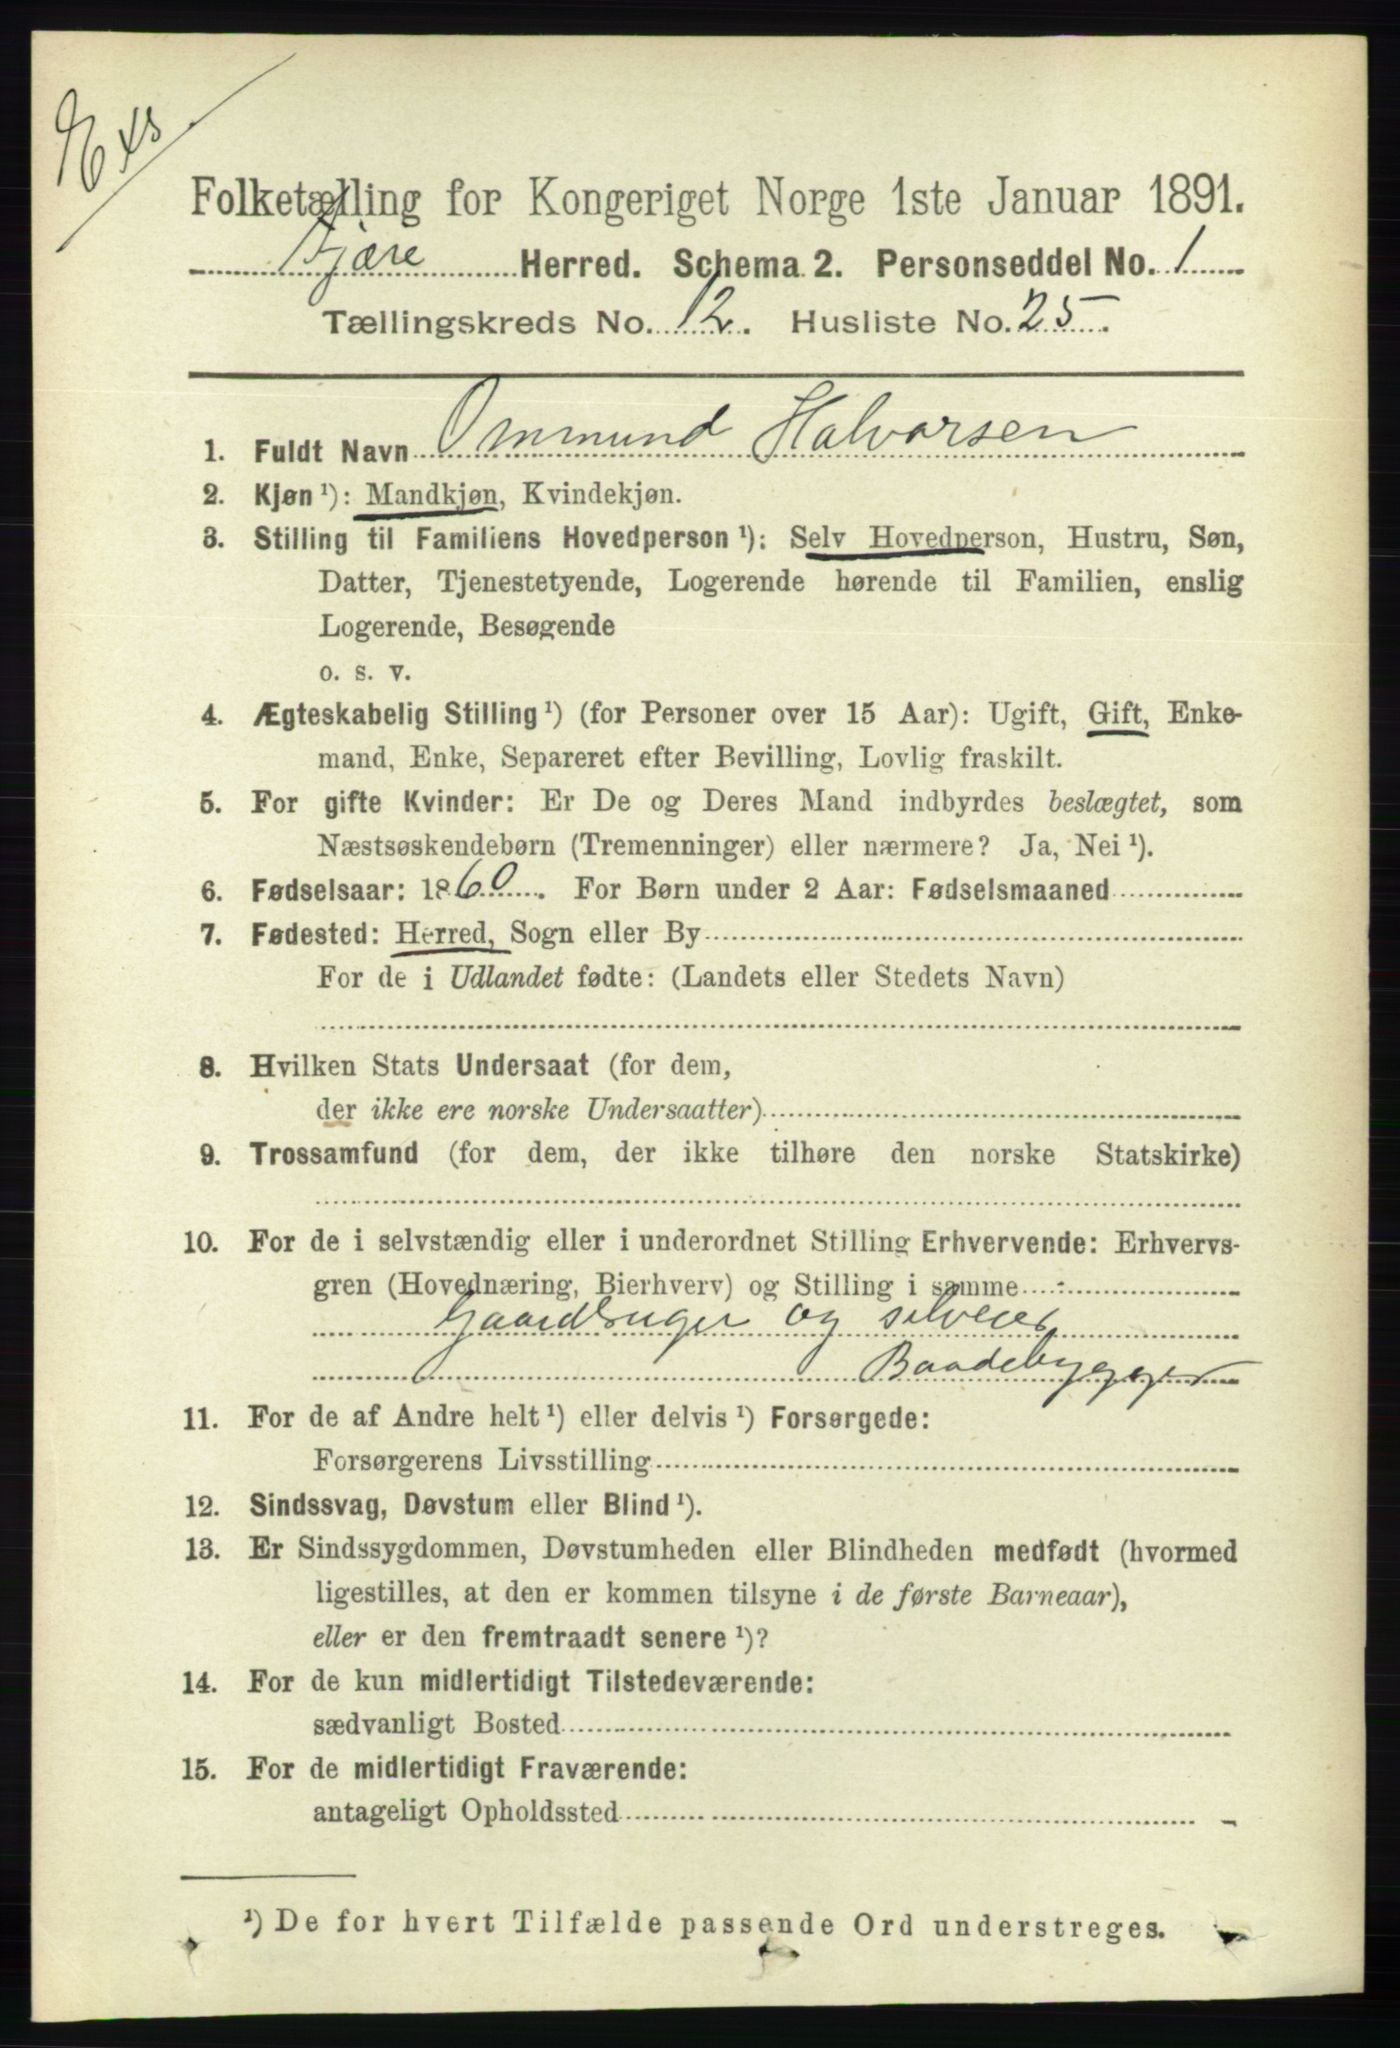 Exs.
Folketælling for Kongeriget Norge 1ste Januar 1891.
Fjære Herred. Schema 2. Personseddel No. 1
Tællingskreds No. 12. Husliste No. 25.
1. Fuldt Navn Ommund Halvorsen
2. Kjøn ¹): Mandkjøn, Kvindekjøn.
3. Stilling til Familiens Hovedperson ¹): Selv Hovedperson, Hustru, Søn,
Datter, Tjenestetyende, Logerende hørende til Familien, enslig
Logerende, Besøgende
o. s. v.
4. Ægteskabelig Stilling ¹) (for Personer over 15 Aar): Ugift, Gift, Enke-
mand, Enke, Separeret efter Bevilling, Lovlig fraskilt.
5. For gifte Kvinder: Er De og Deres Mand indbyrdes beslægtet, som
Næstsøskendebørn (Tremenninger) eller nærmere? Ja, Nei ¹).
6. Fødselsaar: 1860. For Børn under 2 Aar: Fødselsmaaned
7. Fødested: Herred, Sogn eller By
For de i Udlandet fødte: (Landets eller Stedets Navn)
8. Hvilken Stats Undersaat (for dem,
der ikke ere norske Undersaatter)
9. Trossamfund (for dem, der ikke tilhøre den norske Statskirke)
10. For de i selvstændig eller i underordnet Stilling Erhvervende: Erhvervs-
gren (Hovednæring, Bierhverv) og Stilling i samme
Gaardbruger og selveier
Baadebygger
11. For de af Andre helt ¹) eller delvis ¹) Forsørgede:
Forsørgerens Livsstilling
12. Sindssvag, Døvstum eller Blind ¹).
13. Er Sindssygdommen, Døvstumheden eller Blindheden medfødt (hvormed
ligestilles, at den er kommen tilsyne i de første Barneaar),
eller er den fremtraadt senere ¹)?
14. For de kun midlertidigt Tilstedeværende:
sædvanligt Bosted
15. For de midlertidigt Fraværende:
antageligt Opholdssted
¹) De for hvert Tilfælde passende Ord understreges.